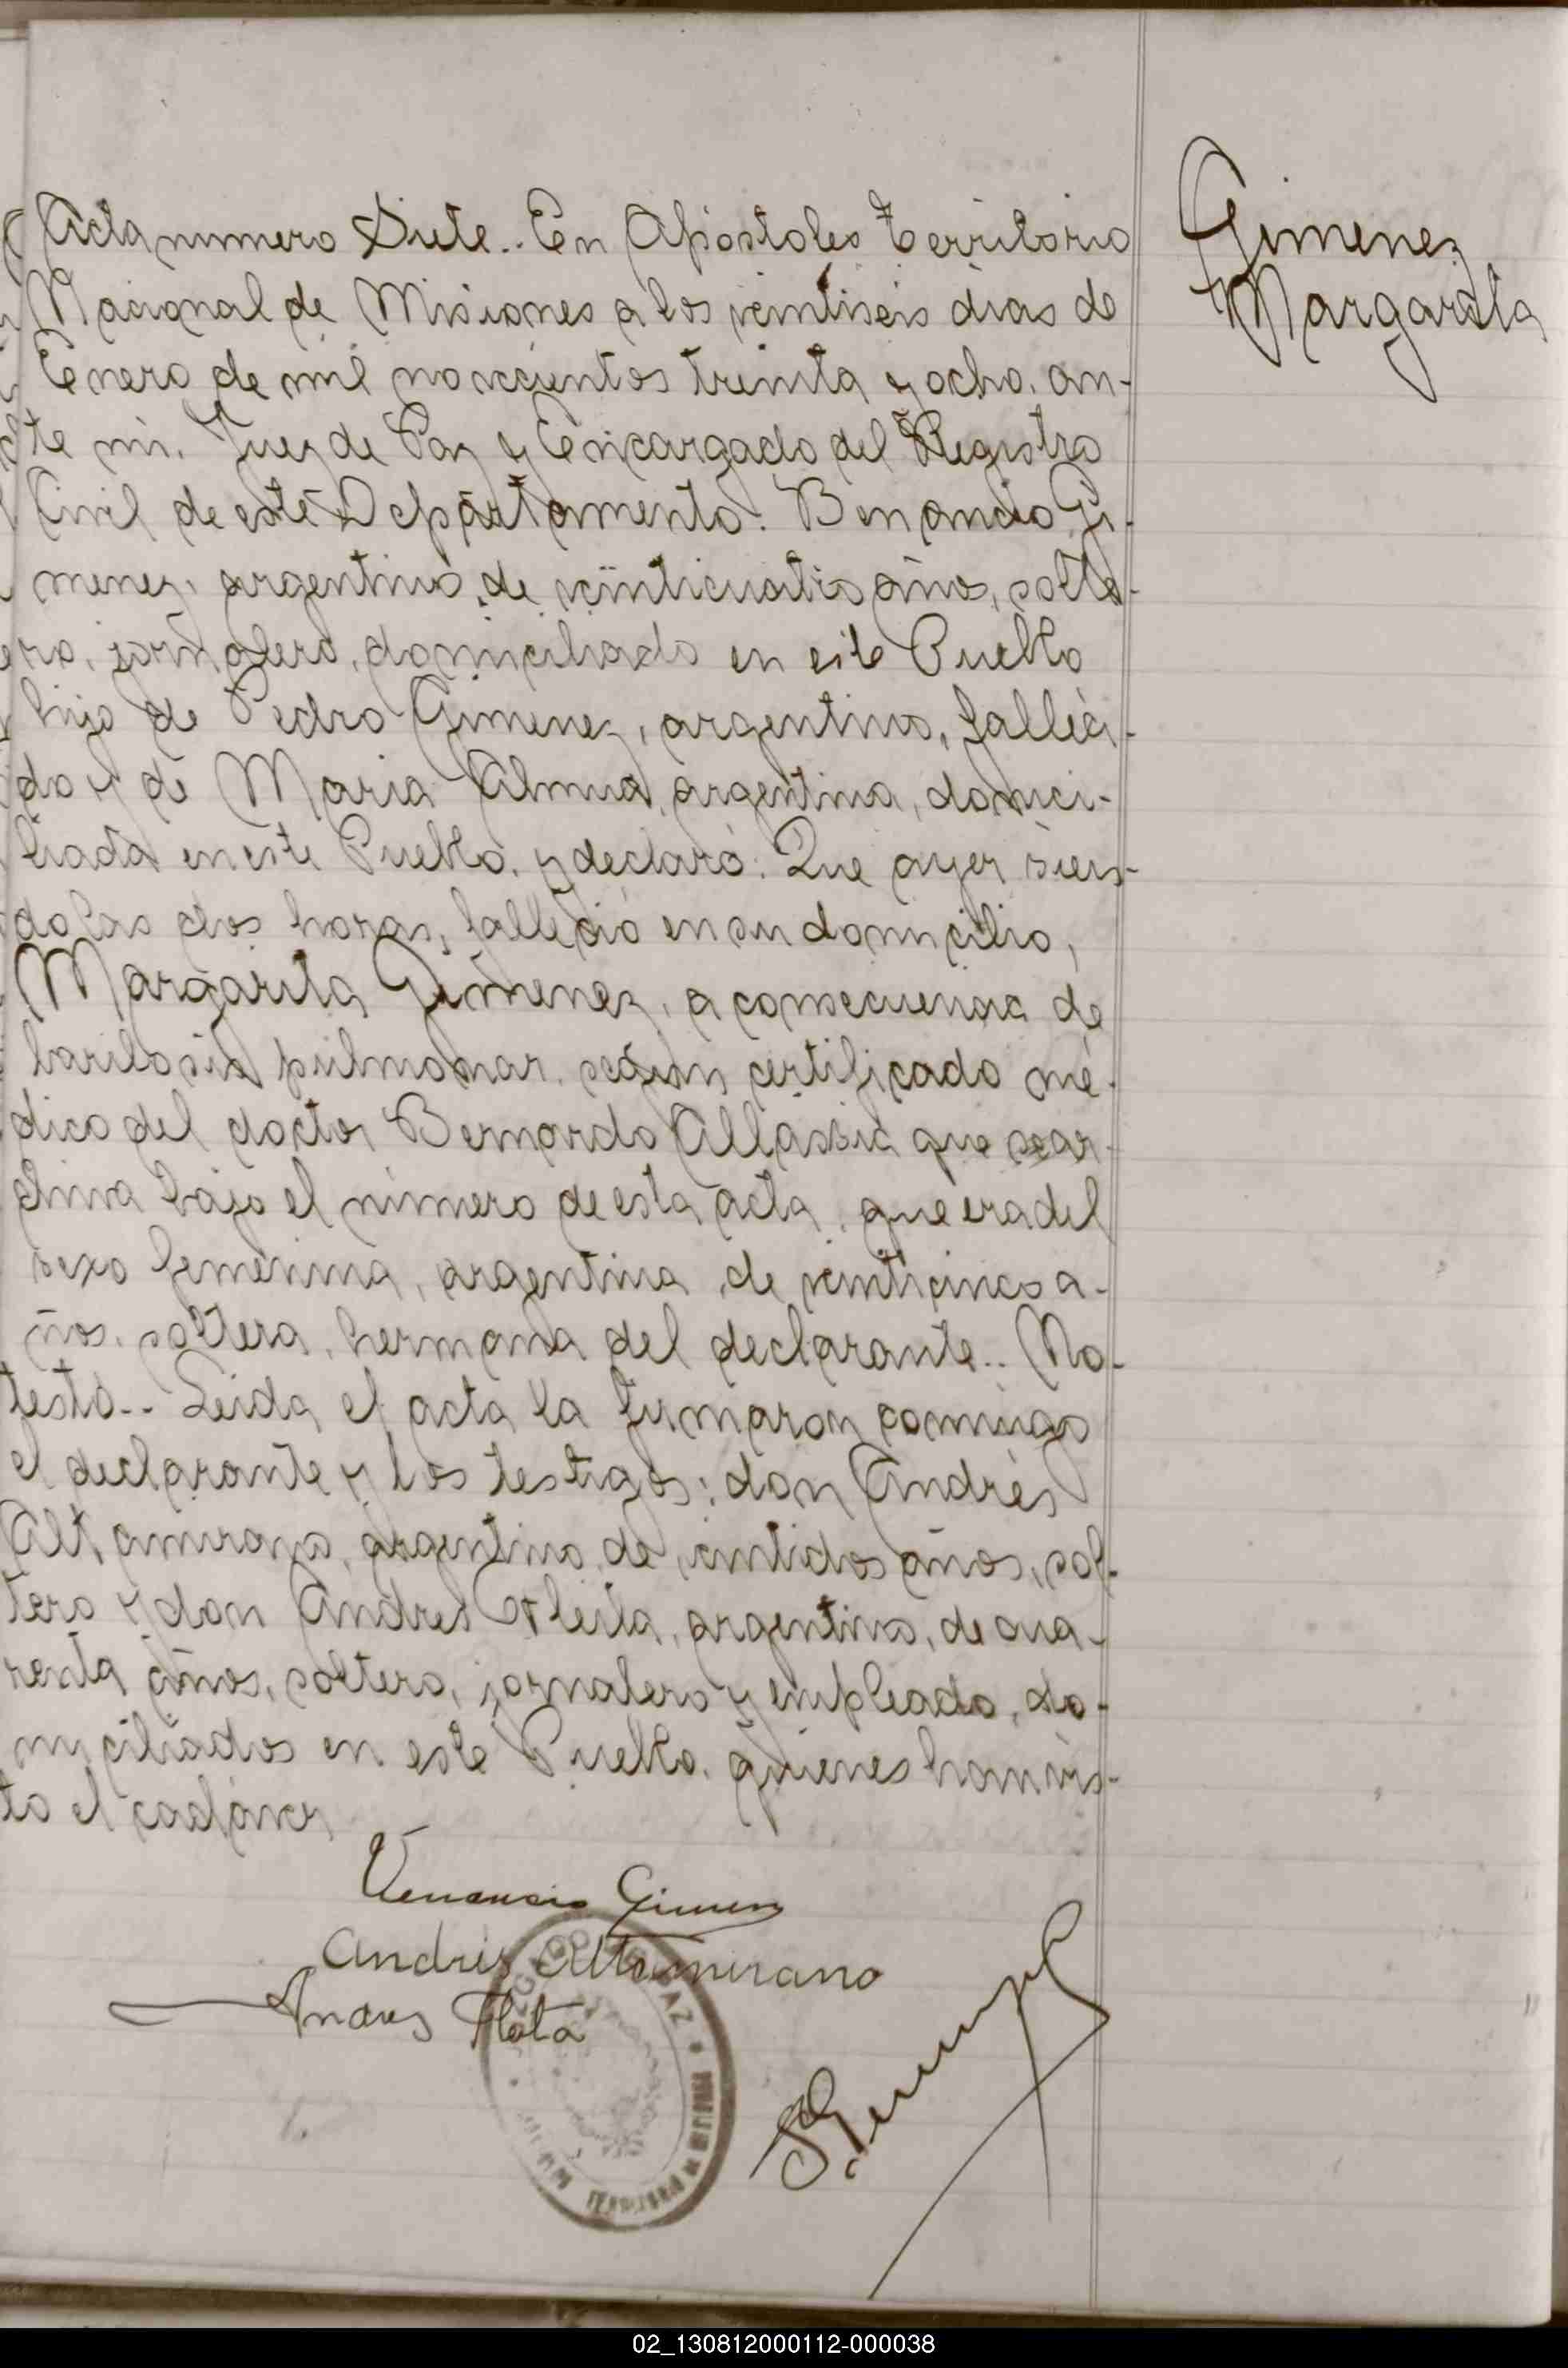 Acta numero Siete.. En Apóstoles Territorio
Nacional de Misiones a los veintiseis dias de
Enero de mil novecientos treinta y ocho. an-
te mi. Juez de Paz y Encargado del Registro
Civil de este Departamento. Benancio Gi-
menez, argentino, de veinticuatro años, solte-
ro, jornalero, domiciliado en este Pueblo
hijo de Pedro Gimenez, argentino, falleci-
do y de Maria argentina, domici-
liada en este Pueblo. y declaró: Que ayer sien-
do las dos horas, falleció en su domicilio,
Margarita Gimenez, a consecuencia de
pulmonar. según certificado mé-
dico del doctor Bernardo Allassia que se ar-
chiva bajo el número de esta acta. que era del
sexo femenino, argentina, de veinticinco a-
ños. soltera, hermana del declarante.. No-
testó.. Leida el acta la firmaron conmigo
el declarante y los testigos: don Andrés
Altamirano, argentino, de veintidos años, sol-
tero y don Andres Fleita, argentino, de cua-
renta años, soltero, jornalero y empleado, do-
miciliados en este Pueblo. quienes han vis-
to el cadáver
Venancio Gimenez
Andrés Altamirano
Andres
Gimenez
Margarita
02_130812000112-000038